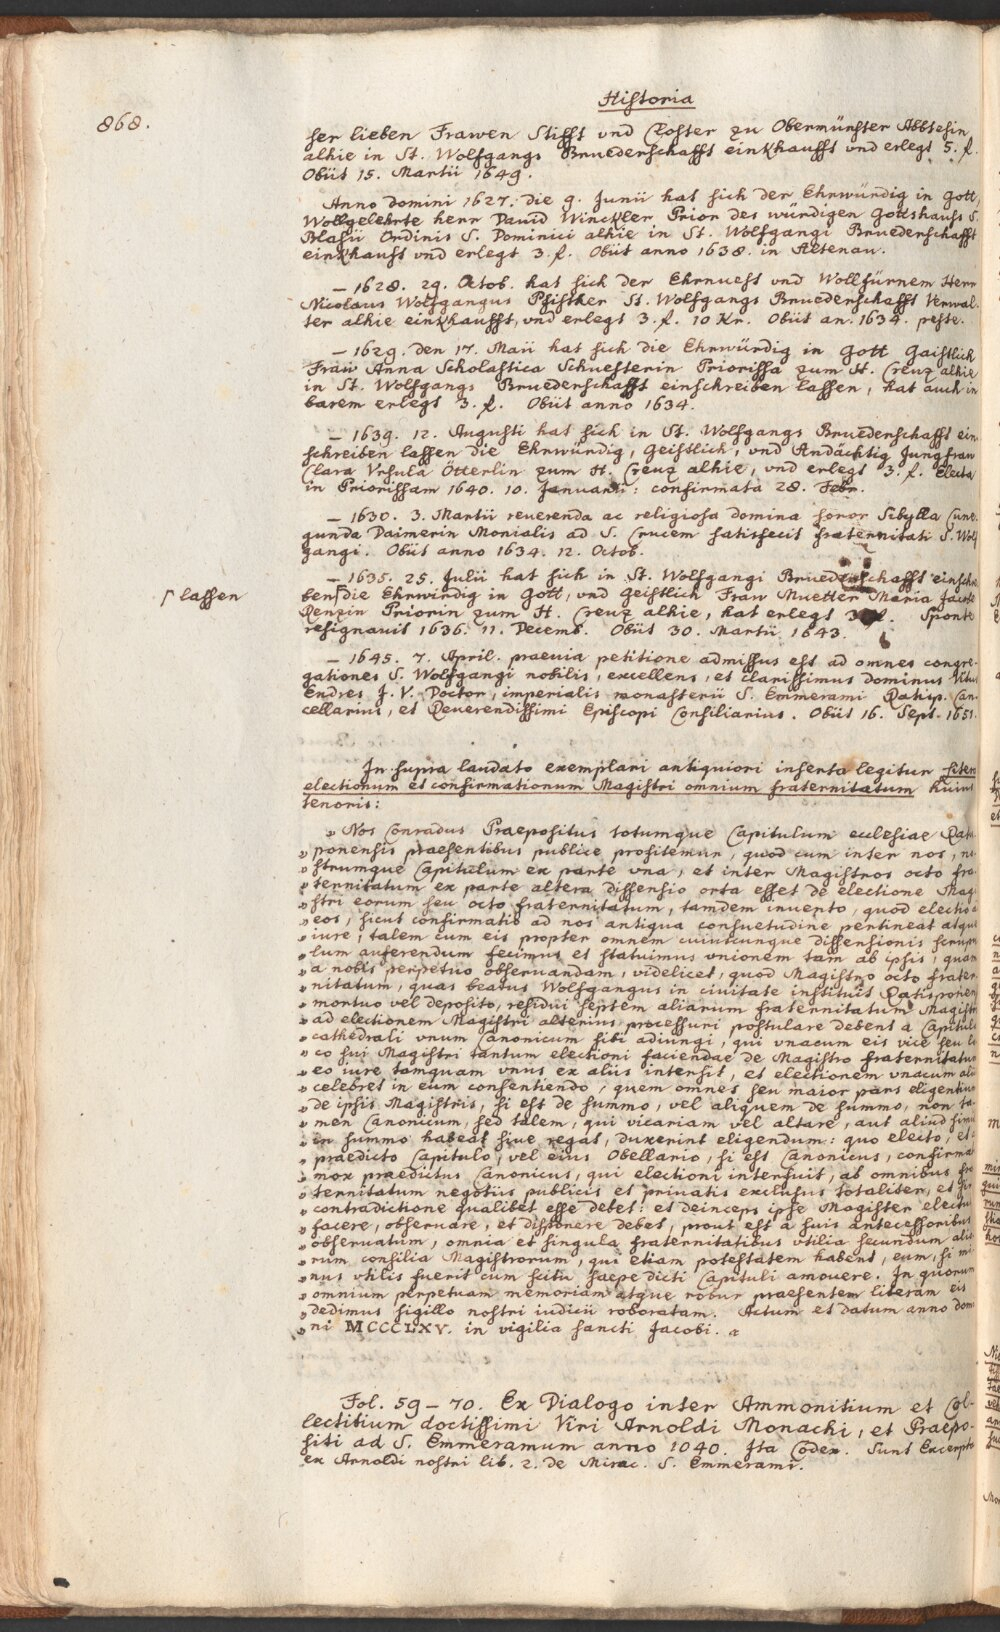 Historia
868.
ser lieben Frawen Stifft vnd Closter zu Obermünster Abbtesin
alhie in St. Wolfgangs Bruederschafft einkhaufft vnd erlegt 5. f.
Obiit 15. Martii 1649.
Anno domini 1627. die 9. Junii hat sich der Ehrwürdig in Gott,
Wollgelehrte herr David Winckler Prior des würdigen Gottshauss S.
Blasii Ordinis S. Dominici alhie in St. Wolfgangi Bruederschafft
einkhauft vnd erlegt 3. f. Obiit anno 1638. in Altenau.
— 1628. 29. Octob. hat sich der Ehrnuest vnd Wollfürnem Herr
Nicolaus Wolfgangus Pfister St. Wolfgangs Bruederschafft Verwal-
ter alhie einkhaufft, vnd erlegt 3. f. 10 Kr. Obiit an. 1634. peste.
— 1629. den 17. Maii hat sich die Ehrwürdig in Gott Gaistlich
Fraw Anna Scholastica Schuesterin Priorissa zum H. Creuz alhie
in St. Wolfgangs Bruederschafft einschreiben lassen, hat auch in
barem erlegt 3. f. Obiit anno 1634.
— 1639. 12. Augusti hat sich in St. Wolfgangs Bruederschafft ein-
schreiben lassen die Ehrwürdig, Geistlich, vnd Andächtig Jungfraw
Clara Vrsula Otterlin zum H. Creuz alhie, vnd erlegt 3. f. Electa
in Priorissam 1640. 10. Januarii: confirmata 28. Febr.
— 1630. 3. Martii reuerenda ac religiosa domina soror Sibylla Cune-
gunda Daimerin Monialis ad S. Crucem satisfecit fraternitati S. Wolf
gangi. Obiit anno 1634. 12. Octob.
— 1635. 25. Julii hat sich in St. Wolfgangi Bruederschafft einschrei
ben⌈die Ehrwirdig in Gott, vnd Geistlich Fraw Muetter Maria Jacobe
⌈ lassen
Renzin Priorin zum H. Creuz alhie, hat erlegt 3 f. Sponte
resignauit 1636. 11. Decemb. Obiit 30. Martii 1643.
— 1645. 7. April. praeuia petitione admissus est ad omnes congre-
gationes S. Wolfgangi nobilis, excellens, et clarissimus dominus Vitus
Endres J. V. Doctor, imperialis monasterii S. Emmerami Ratisp. Can-
cellarius, et Reuerendissimi Episcopi Consiliarius. Obiit 16. Sept. 1651.
In supra laudato exemplari antiquiori inserta legitur litera
electionum et confirmationum Magistri omnium fraternitatum huius
tenoris:
» Nos Conradus Praepositus totumque Capitulum ecclesiae Ratis
» ponensis praesentibus publice profitemur, quod cum inter nos, no
» strumque Capitulum ex parte vna, et inter Magistros octo fra
» ternitatum ex parte altera dissensio orta esset de electione Magi
» stri eorum seu octo fraternitatum, tamdem inuento, quod electio a
» eos, sicut confirmatio ad nos antiqua consuetudine pertineat atque
» iure, talem cum eis propter omnem cuiuscunque dissensionis scrupu
» lum auferendum fecimus et statuimus vnionem tam ab ipsis, quam
» a nobis perpetuo obseruandam, videlicet, quod Magistro octo frater
» nitatum, quas beatus Wolfgangus in ciuitate instituit Ratisponen
» mortuo vel deposito, residui septem aliarum fraternitatum Magistri
» ad electionem Magistri alterius processuri postulare debent a Capitulo
» cathedrali vnum Canonicum sibi adiungi, qui vnacum eis vice seu lo
» co sui Magistri tantum electioni faciendae de Magistro fraternitatum
» eo iure tamquam vnus ex aliis intersit, et electionem vnacum aliis
» celebret in eum consentiendo, quem omnes seu maior pars eligentium
» de ipsis Magistris, si est de summo, vel aliquem de summo, non ta
» men Canonicum, sed talem, qui vicariam vel altare, aut aliud simile
» in summo habeat siue regat, duxerint eligendum: quo electo, et a
» praedicto Capitulo, vel eius Obellario, si est Canonicus, confirmato
» mox praedictus Canonicus, qui electioni interfuit, ab omnibus fra
» ternitatum negotiis publicis et priuatis exclusus totaliter, et sine
» contradictione qualibet esse debet: et deinceps ipse Magister electus
» facere, obseruare, et disponere debet, prout est a suis antecessoribus
» obseruatum, omnia et singula fraternitatibus vtilia secundum alio
» rum consilia Magistrorum, qui etiam potestatem habent, eum, si mi
» nus vtilis fuerit cum scitu saepe dicti Capituli amouere. In quorum
» omnium perpetuam memoriam atque robur praesentem literam eis
» dedimus sigillo nostri iudicii roboratam. Actum et datum anno domi
» ni MCCCLXV. in vigilia sancti Jacobi.
Fol. 59 – 70. Ex Dialogo inter Ammonitium et Col-
lectitium doctissimi Viri Arnoldi Monachi, et Praepo-
siti ad S. Emmeramum anno 1040. Ita Codex. Sunt Excerpta
ex Arnoldi nostri lib. 2. de Mirac. S. Emmerami.